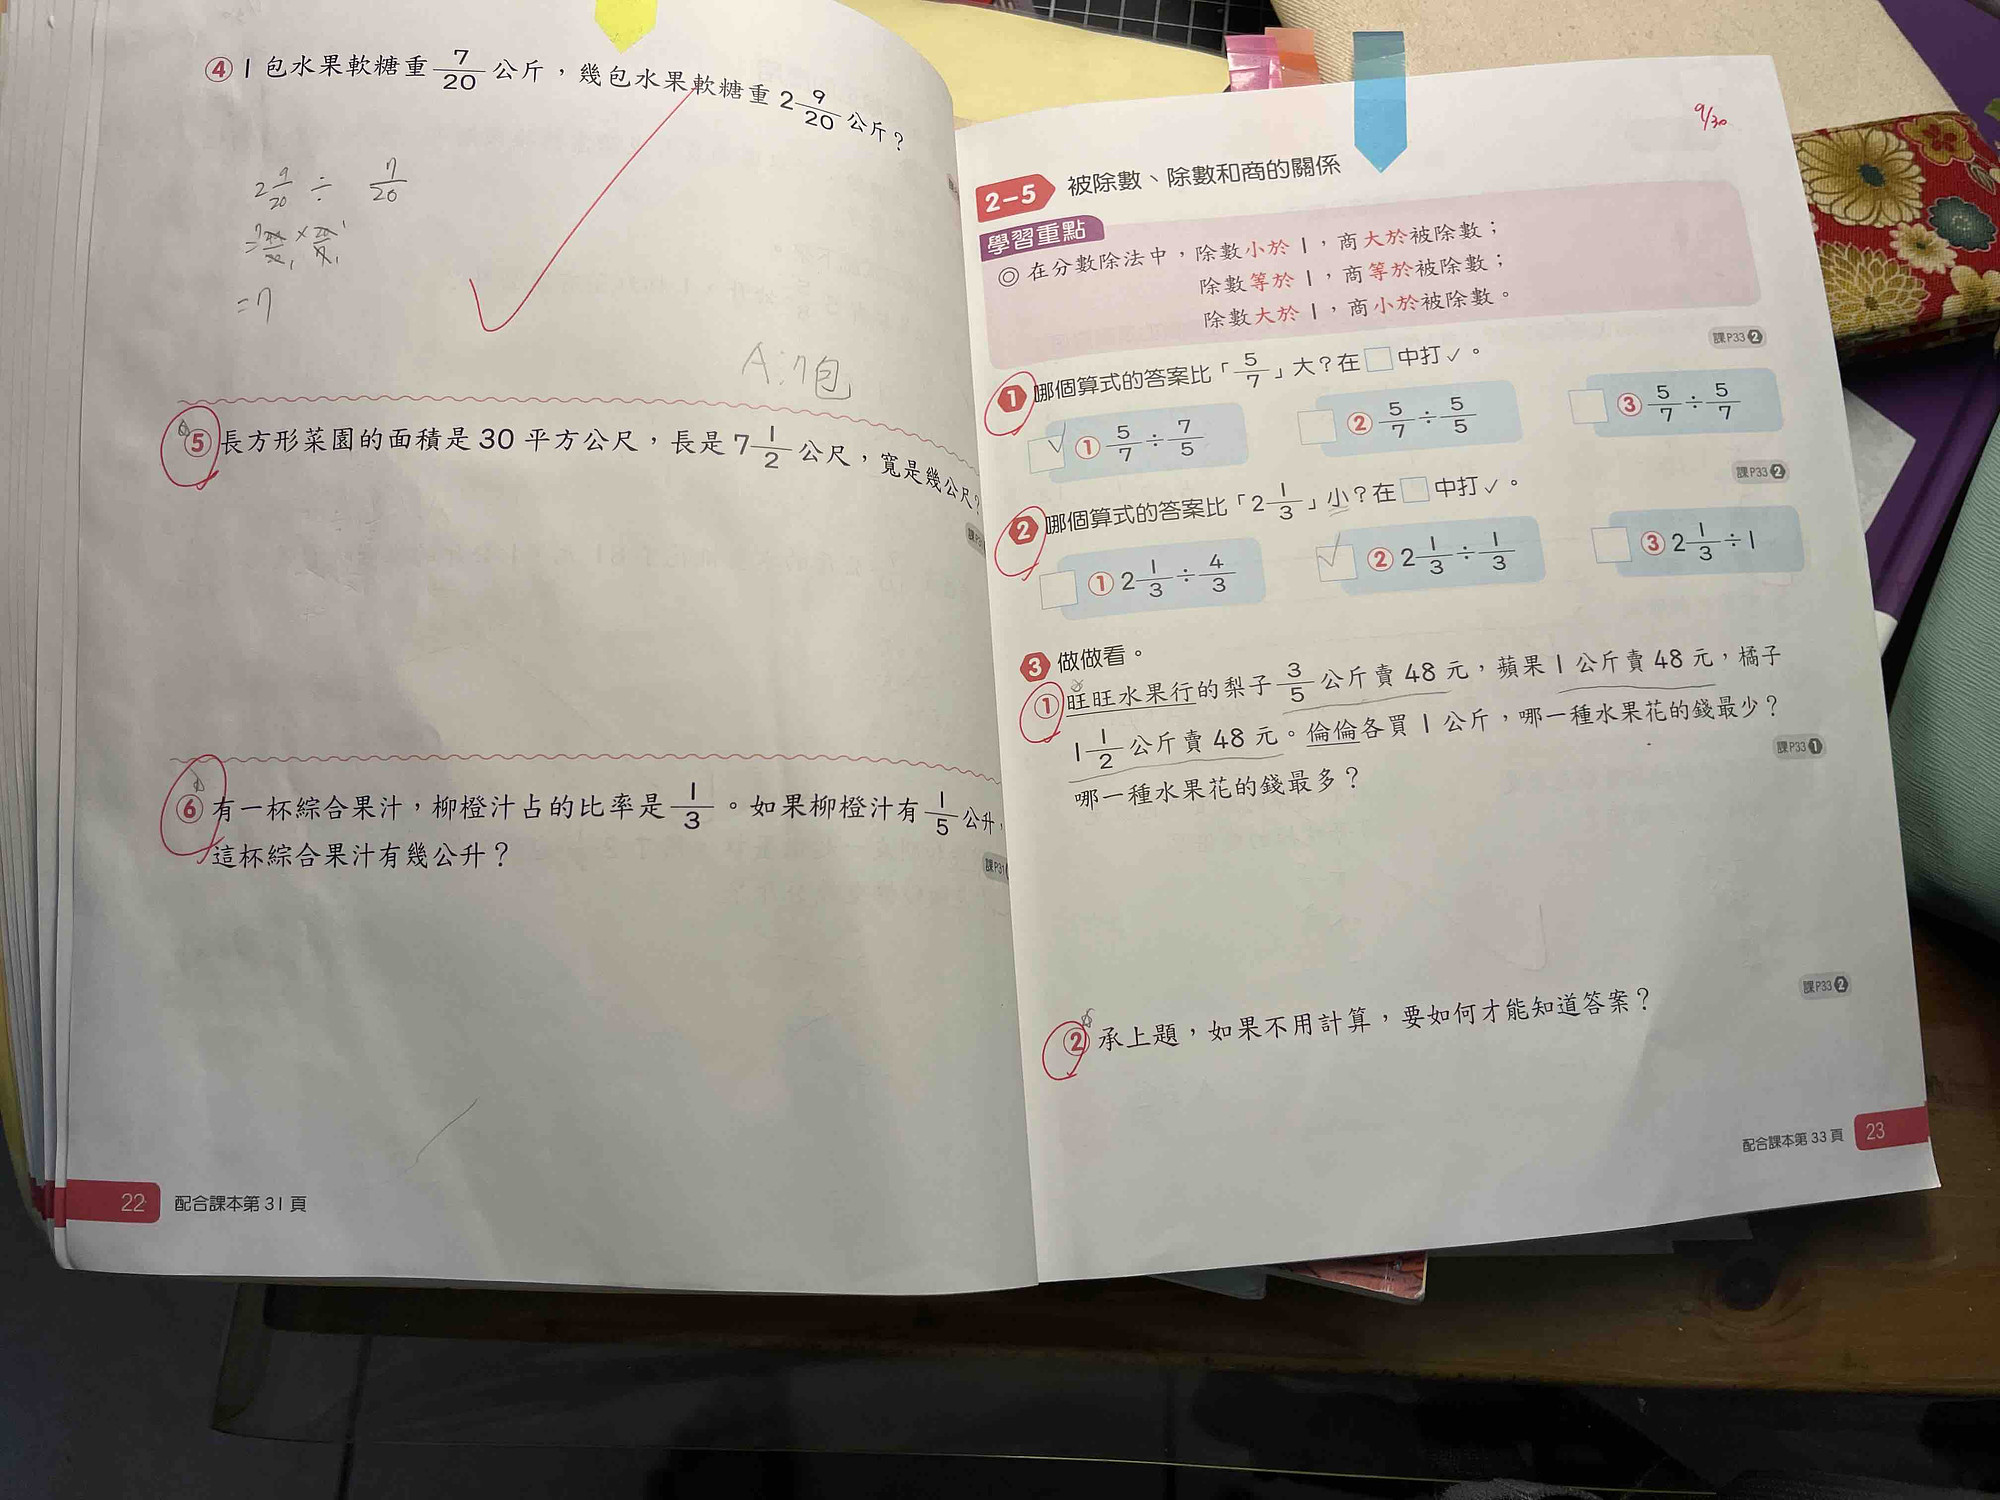 ④ 1包水果軟糖重7/20公斤，幾包水果軟糖重2 9/20公斤？
2 9/20 ÷ 7/20
=7
A:7包
⑤ 長方形菜園的面積是30平方公尺，長是7 1/2公尺，寬是幾公尺？
⑥ 有一杯綜合果汁，柳橙汁占的比率是1/3。如果柳橙汁有1/5公升，
這杯綜合果汁有幾公升？
課P31
22 配合課本第31頁
9/30
2-5 被除數、除數和商的關係
學習重點
◎在分數除法中，除數小於1，商大於被除數；
除數等於1，商等於被除數；
除數大於1，商小於被除數。
課P33②
1 哪個算式的答案比「5/7」大？在□中打✓。
✓ ① 5/7÷7/5 □ ② 5/7÷5/5 □ ③ 5/7÷5/7
課P33②
2 哪個算式的答案比「2 1/3」小？在□中打✓。
□ ① 2 1/3÷4/3 ✓ ② 2 1/3÷1/3 □ ③ 2 1/3÷1
3 做做看。
① 旺旺水果行的梨子3/5公斤賣48元，蘋果1公斤賣48元，橘子
1 1/2公斤賣48元。倫倫各買1公斤，哪一種水果花的錢最少？
課P33①
哪一種水果花的錢最多？
課P33②
② 承上題，如果不用計算，要如何才能知道答案？
配合課本第33頁 23